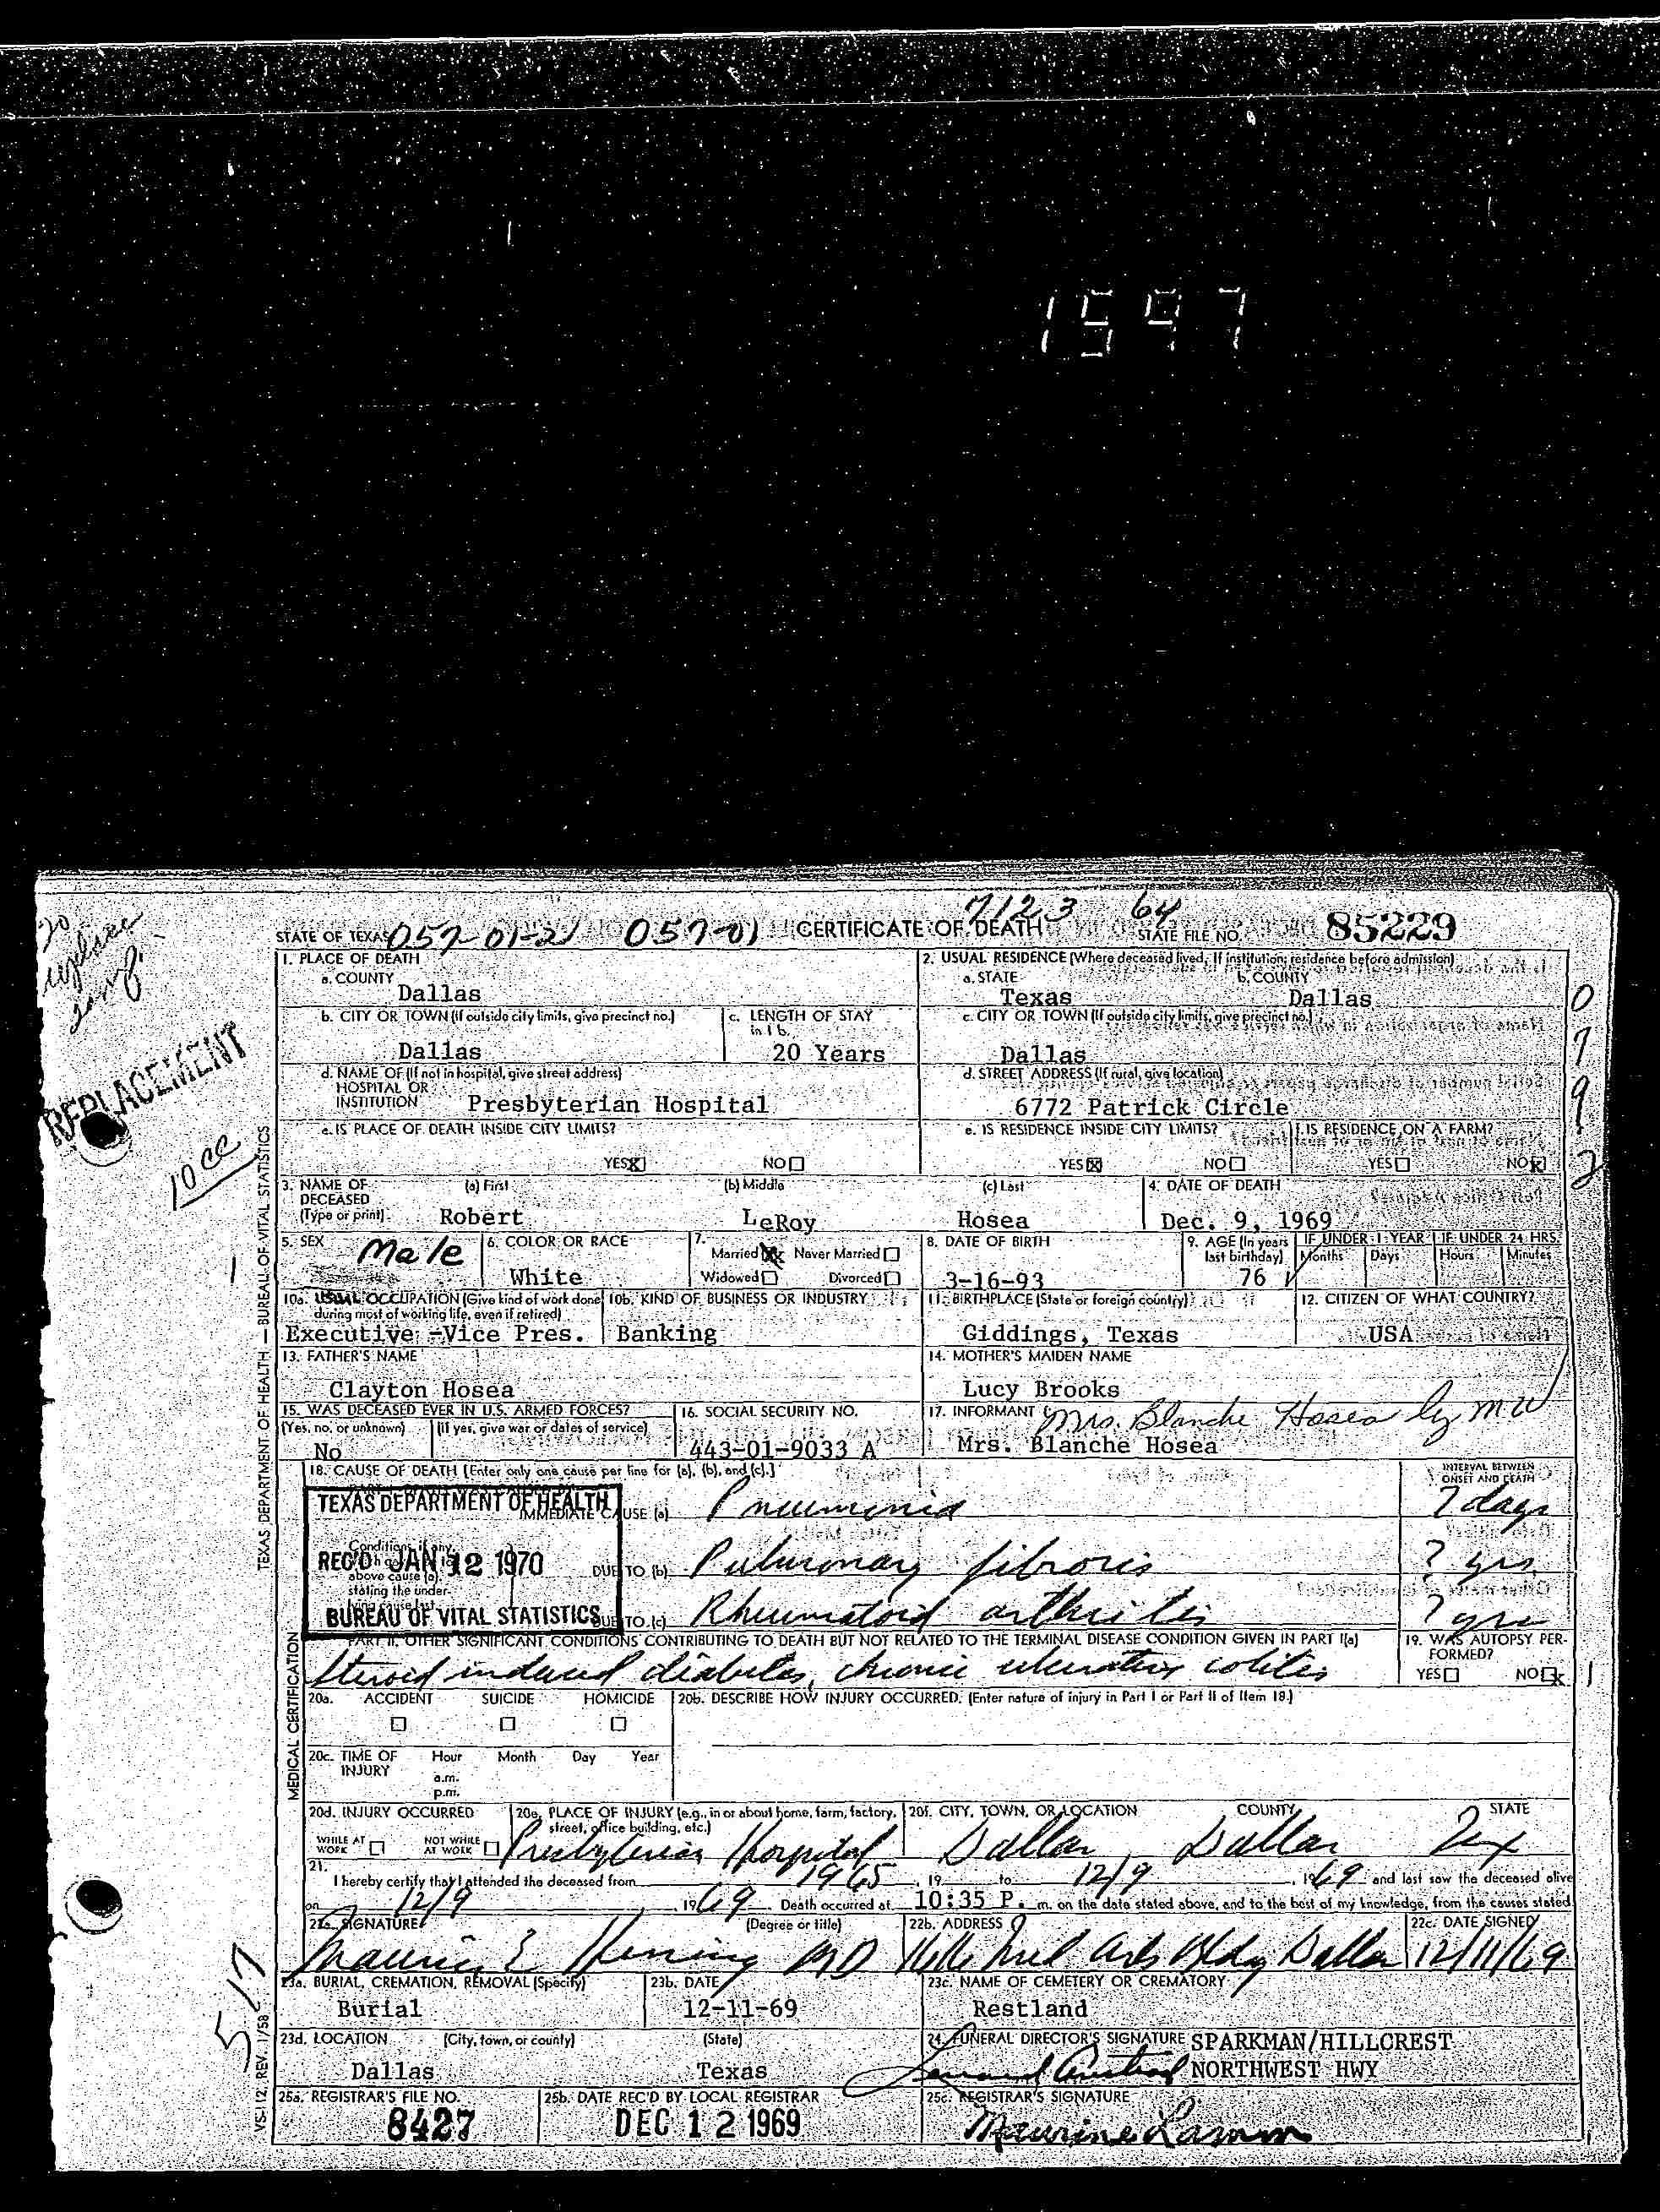 1597
7123 64
STATE OF TEXAS 057-01-21 057-01 CERTIFICATE OF DEATH STATE FILE NO. 85229
1. PLACE OF DEATH
a. COUNTY
Dallas
2. USUAL RESIDENCE (Where deceased lived. If institution: residence before admission)
a. STATE b. COUNTY
Texas Dallas
b. CITY OR TOWN (If outside city limits, give precinct no.)
Dallas
c. LENGTH OF STAY in 1b.
20 Years
c. CITY OR TOWN (If outside city limits, give precinct no.)
Dallas
d. NAME OF (If not in hospital, give street address)
HOSPITAL OR
INSTITUTION Presbyterian Hospital
d. STREET ADDRESS (If rural, give location)
6772 Patrick Circle
e. IS PLACE OF DEATH INSIDE CITY LIMITS?
YES X NO
e. IS RESIDENCE INSIDE CITY LIMITS?
YES X NO
f. IS RESIDENCE ON A FARM?
YES NO X
0
7
9
2
REPLACEMENT
10 cc
3. NAME OF DECEASED (Type or print)
(a) First (b) Middle (c) Last
Robert LeRoy Hosea
4. DATE OF DEATH
Dec. 9, 1969
5. SEX
Male
6. COLOR OR RACE
White
7.
Married X Never Married
Widowed Divorced
8. DATE OF BIRTH
3-16-93
9. AGE (In years last birthday)
76
IF UNDER 1 YEAR
Months Days
IF UNDER 24 HRS.
Hours Minutes
10a. USUAL OCCUPATION (Give kind of work done during most of working life, even if retired)
Executive -Vice Pres.
10b. KIND OF BUSINESS OR INDUSTRY
Banking
11. BIRTHPLACE (State or foreign country)
Giddings, Texas
12. CITIZEN OF WHAT COUNTRY?
USA
13. FATHER'S NAME
Clayton Hosea
14. MOTHER'S MAIDEN NAME
Lucy Brooks
15. WAS DECEASED EVER IN U.S. ARMED FORCES?
(Yes, no, or unknown) (If yes, give war or dates of service)
No
16. SOCIAL SECURITY NO.
443-01-9033 A
17. INFORMANT Mrs. Blanche Hosea by MW
Mrs. Blanche Hosea
18. CAUSE OF DEATH [Enter only one cause per line for (a), (b), and (c).]
INTERVAL BETWEEN
ONSET AND DEATH
TEXAS DEPARTMENT OF HEALTH
REC'D JAN 12 1970
BUREAU OF VITAL STATISTICS
IMMEDIATE CAUSE (a) Pneumonia 7 days
Conditions, if any,
above cause (a),
stating the under-
lying cause last.
DUE TO (b) Pulmonary fibrosis ? yrs
DUE TO (c) Rheumatoid arthritis ? yrs
PART II. OTHER SIGNIFICANT CONDITIONS CONTRIBUTING TO DEATH BUT NOT RELATED TO THE TERMINAL DISEASE CONDITION GIVEN IN PART I(a)
Steroid induced diabetes, chronic ulcerative colitis
19. WAS AUTOPSY PERFORMED?
YES NO X
20a. ACCIDENT SUICIDE HOMICIDE
20b. DESCRIBE HOW INJURY OCCURRED. (Enter nature of injury in Part I or Part II of Item 18.)
20c. TIME OF INJURY
Hour Month Day Year
a.m.
p.m.
20d. INJURY OCCURRED
WHILE AT WORK NOT WHILE AT WORK
20e. PLACE OF INJURY (e.g., in or about home, farm, factory, street, office building, etc.)
Presbyterian Hospital
20f. CITY, TOWN, OR LOCATION COUNTY STATE
Dallas Dallas Tex
21.
I hereby certify that I attended the deceased from 1965, 19 to 12/9, 1969 and last saw the deceased alive
on 12/9, 1969 Death occurred at 10:35 P. m. on the date stated above, and to the best of my knowledge, from the causes stated.
22a. SIGNATURE (Degree or title)
MD
22b. ADDRESS
Med Arts Bldg Dallas
22c. DATE SIGNED
12/11/69
23a. BURIAL, CREMATION, REMOVAL (Specify)
Burial
23b. DATE
12-11-69
23c. NAME OF CEMETERY OR CREMATORY
Restland
23d. LOCATION (City, town, or county) (State)
Dallas Texas
24. FUNERAL DIRECTOR'S SIGNATURE SPARKMAN/HILLCREST
NORTHWEST HWY
25a. REGISTRAR'S FILE NO.
8427
25b. DATE REC'D BY LOCAL REGISTRAR
DEC 12 1969
25c. REGISTRAR'S SIGNATURE
Maurine Lamm
TEXAS DEPARTMENT OF HEALTH — BUREAU OF VITAL STATISTICS
MEDICAL CERTIFICATION
VS-112, REV. 1/58
517